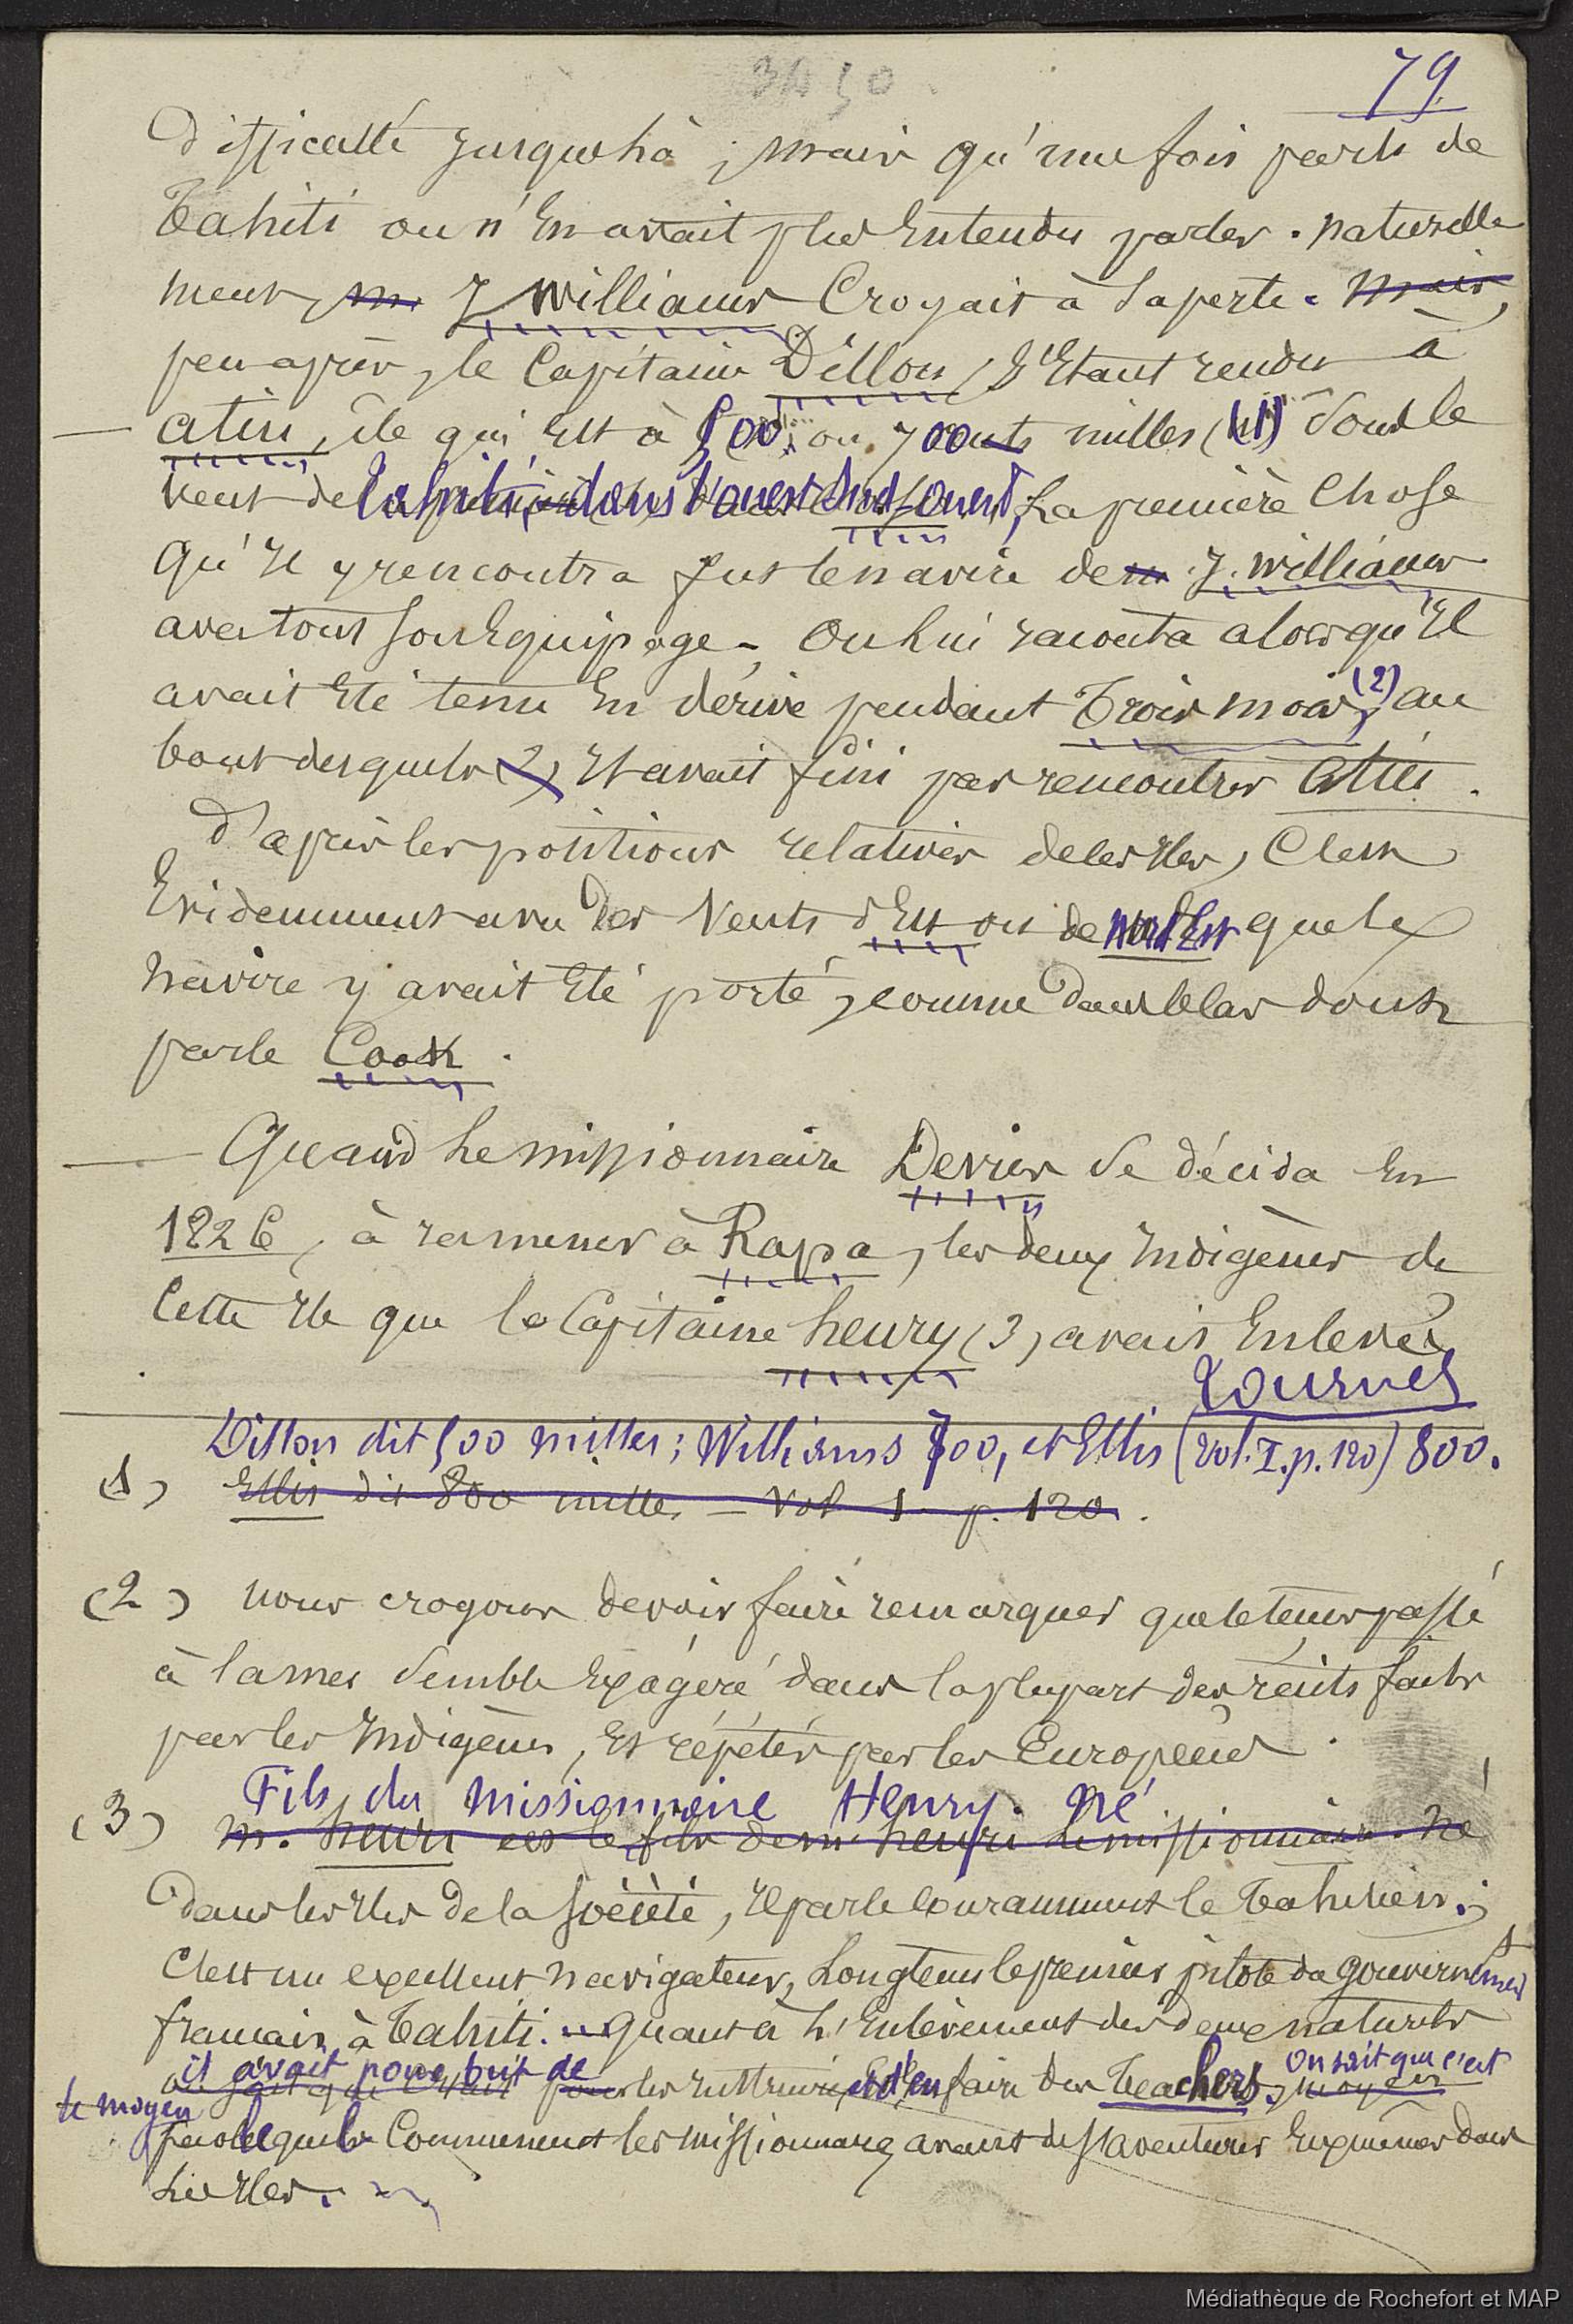 3450
79
difficulté jusque là ; mais qu'une fois parti de
Tahiti on n'en avait plus entendu parler. naturelle
ment, m. J Williams Croyait à sa perte. mais,
peu après, le Capitaine Dillon, s'étant rendu à
atiu, île qui est à 500 ou 700 milles (1) sous le
vent de Tahiti, dans l'ouest Sud-ouest, La première chose
qu'il y rencontra fut le navire de m. J. Williams
avec tout son Equipage. On lui raconta alors qu'il
avait été tenu en dérive pendant Trois mois, (2) au
bout desquels (2) il avait fini par rencontrer Atiu.
D'après les positions relatives de ces îles, C'est
Evidemment avec des Vents d'Est ou de nord Est que le
navire y avait été porté, comme dans le cas dont
parle Cook.
Quand le missionnaire Devies se décida en
1826, à ramener à Rapa, les deux indigènes de
Cette île que le Capitaine henry (3) avait Enlevés
Tournez
Dillon dit 500 milles ; Williams 700, et Ellis (vol. I. p. 120) 800.
(1) Ellis dit 800 milles — Vol 1 p. 120.
(2) nous croyons devoir faire remarquer que le tems passé
à la mer semble Exagéré dans la plupart des récits faits
par les indigènes, et répétés par les Européens.
Fils du missionnaire Henry. né
(3) m. henri est le fils de m. henri le missionnaire. né
dans les îles de la Société, il parle couramment le tahitien ;
C'est un excellent navigateur, Longtems le premier pilote du gouvernement
francais à Tahiti. — quant à l'Enlèvement des deux naturels
il avait pour but de on sait que c'est
on sait que c'était pour les instruire, et d'en faire des Teachers, moyen
le moyen
par lequel Commencent les missionnaires avant de s'aventurer Eux mêmes dans
Les îles.
Médiathèque de Rochefort et MAP